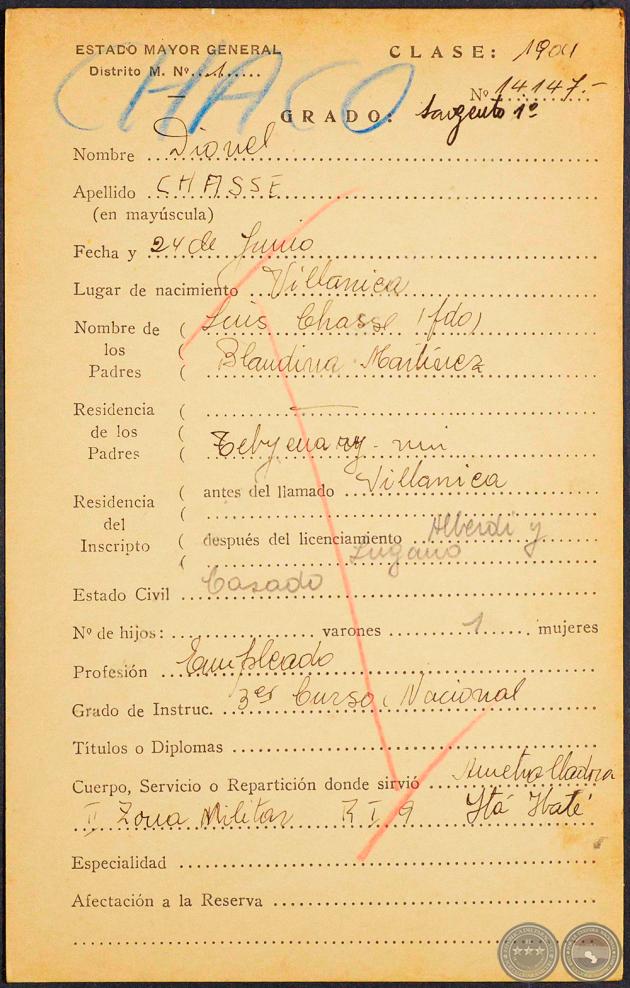 ESTADO MAYOR GENERAL
CLASE: 1904
Distrito M. Nº 1
CHACO
Nº 14147.-
GRADO: Sargento 1º
Nombre Dionel
Apellido CHASSE
(en mayúscula)
Fecha y 24 de Junio
Lugar de nacimiento Villarrica
Nombre de los Padres ( Luis Chasse (fdo)
( Blandina Martinez
Residencia de los Padres (
( Tebycuary-mi
Residencia del Inscripto ( antes del llamado Villarrica
( después del licenciamiento Alberdi y
( Lugano
Estado Civil Casado
Nº de hijos: varones 1 mujeres
Profesión Empleado
Grado de Instruc. 3er Curso Nacional
Títulos o Diplomas
Cuerpo, Servicio o Repartición donde sirvió Ametralladora
II Zona Militar R I 9 Ytá Ybaté
Especialidad
Afectación a la Reserva